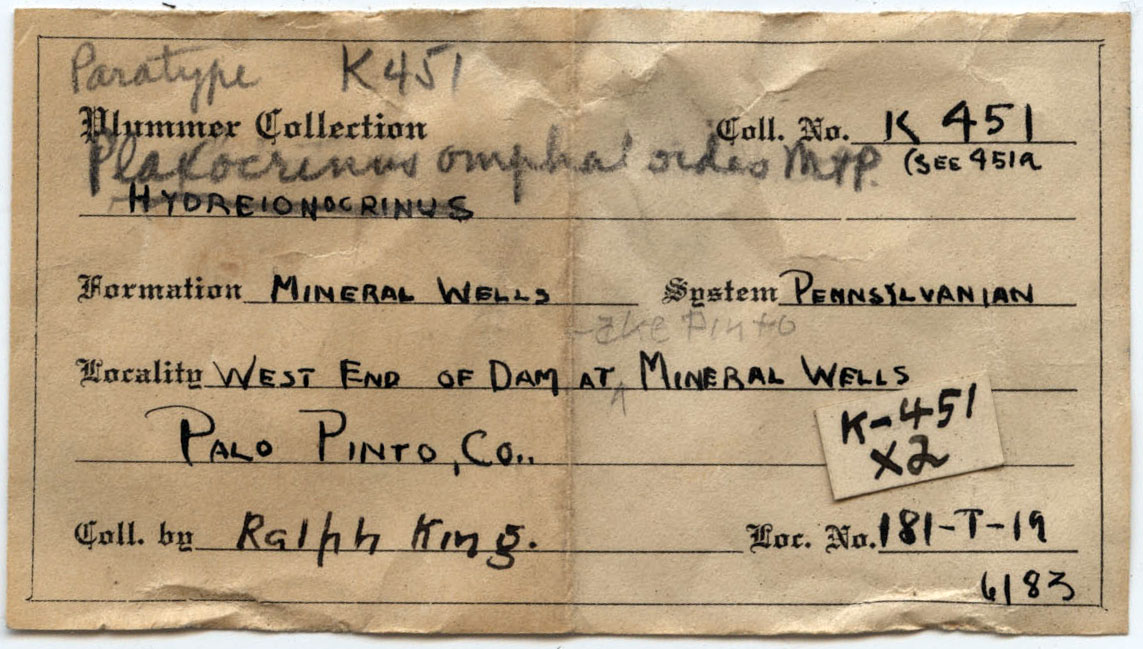 Paratype K451
Plummer Collection Coll. No. K 451
Plaxocrinus omphaloides M+P. (SEE 451A
HYDREIONOCRINUS
Formation MINERAL WELLS System PENNSYLVANIAN
Lake Pinto
Locality WEST END OF DAM AT MINERAL WELLS
K-451
X2
PALO PINTO, CO..
Coll. by Ralph King. Loc. No. 181-T-19
6183